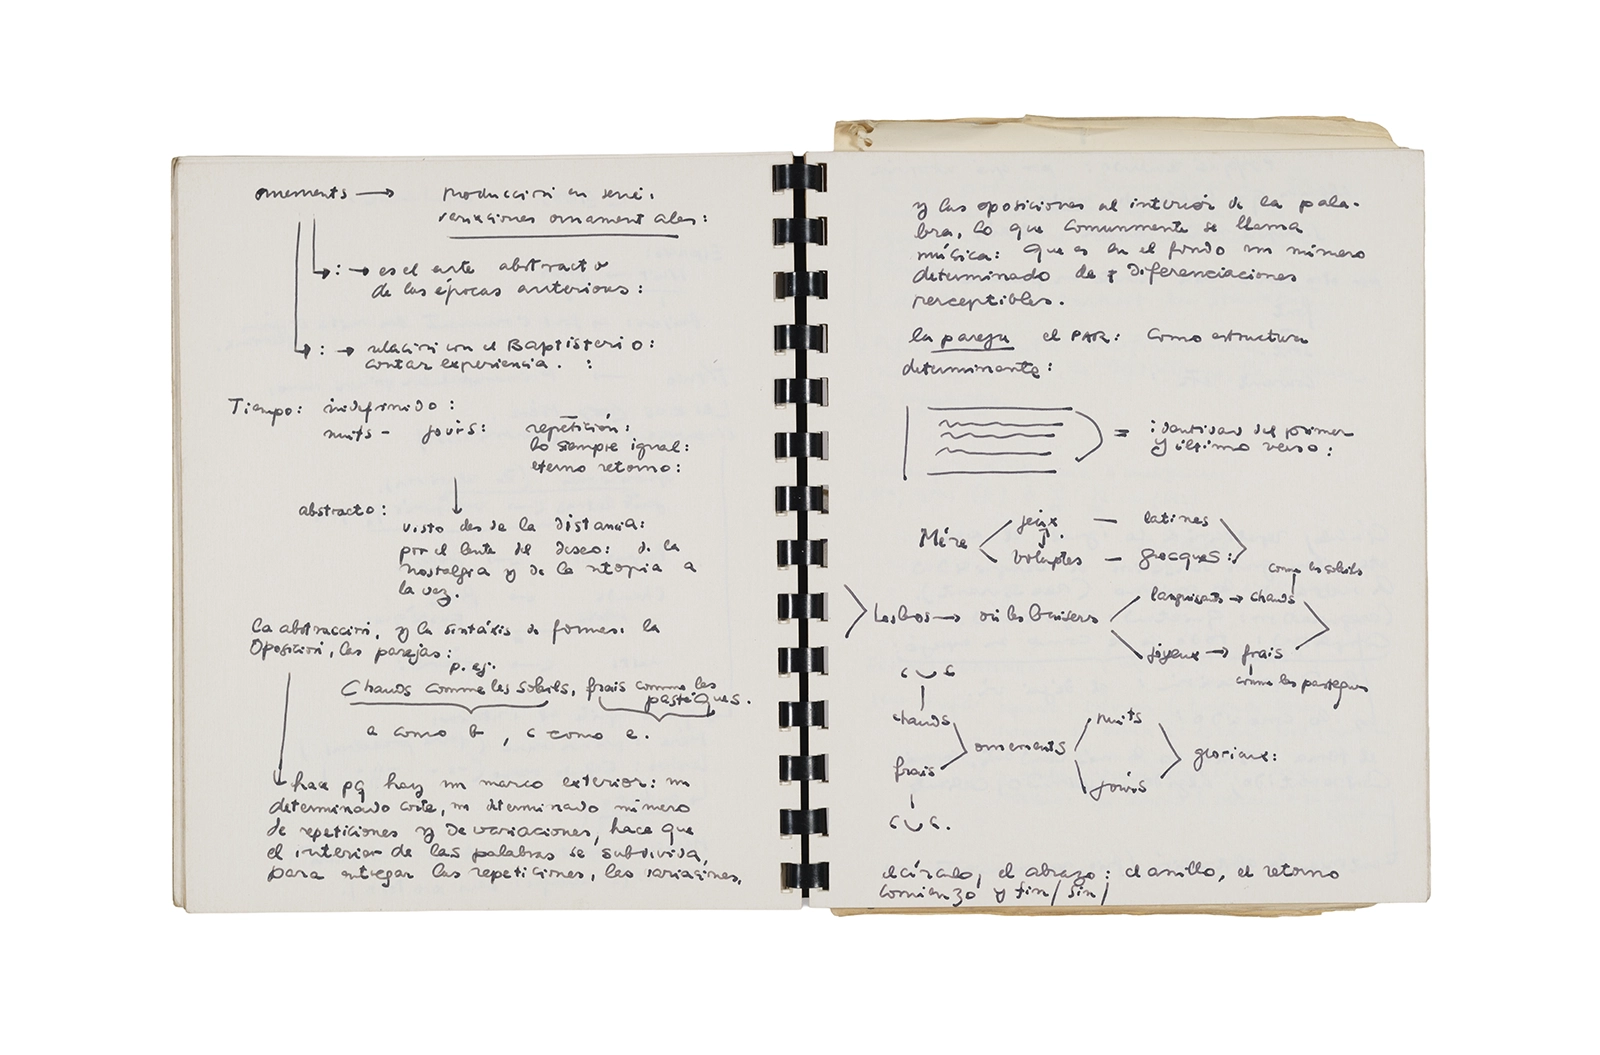 ornements → producción en serie,
variaciones ornamentales:
: → es el arte abstracto
de las épocas anteriores:
: → relación con el Baptisterio:
contar experiencia. :
Tiempo: indefinido:
nuits - jours: repetición:
lo siempre igual:
eterno retorno:
abstracto:
visto desde la distancia:
por el lente del deseo: de la
nostalgia y de la utopia a
la vez.
la abstracción, y la sintáxis de formas. la
oposición, las parejas:
p. ej.
Chauds comme les soleils, frais comme les
pastèques.
a como b, c como e.
hace pq hay un marco exterior: un
determinado corte, un determinado número
de repeticiones y de variaciones, hace que
el interior de las palabras se subdivida,
para entregar las repeticiones, las variaciones,
y las oposiciones al interior de la pala-
bra, lo que comunmente se llama
música: que es en el fondo un número
determinado de diferenciaciones
perceptibles.
la pareja el PAR: como estructura
determinante:
= identidad del primer
y último verso:
Mère jeux — latines
voluptes — grecques:
come les soleils
languissants → chauds
Lesbos → où les baisers
joyeux → frais
come les pasteques
c ᴗ c
chauds nuits
ornements glorieux:
frais jours
c ᴗ c.
el círculo, el abrazo: el anillo, el retorno
comienzo y fin / sin /